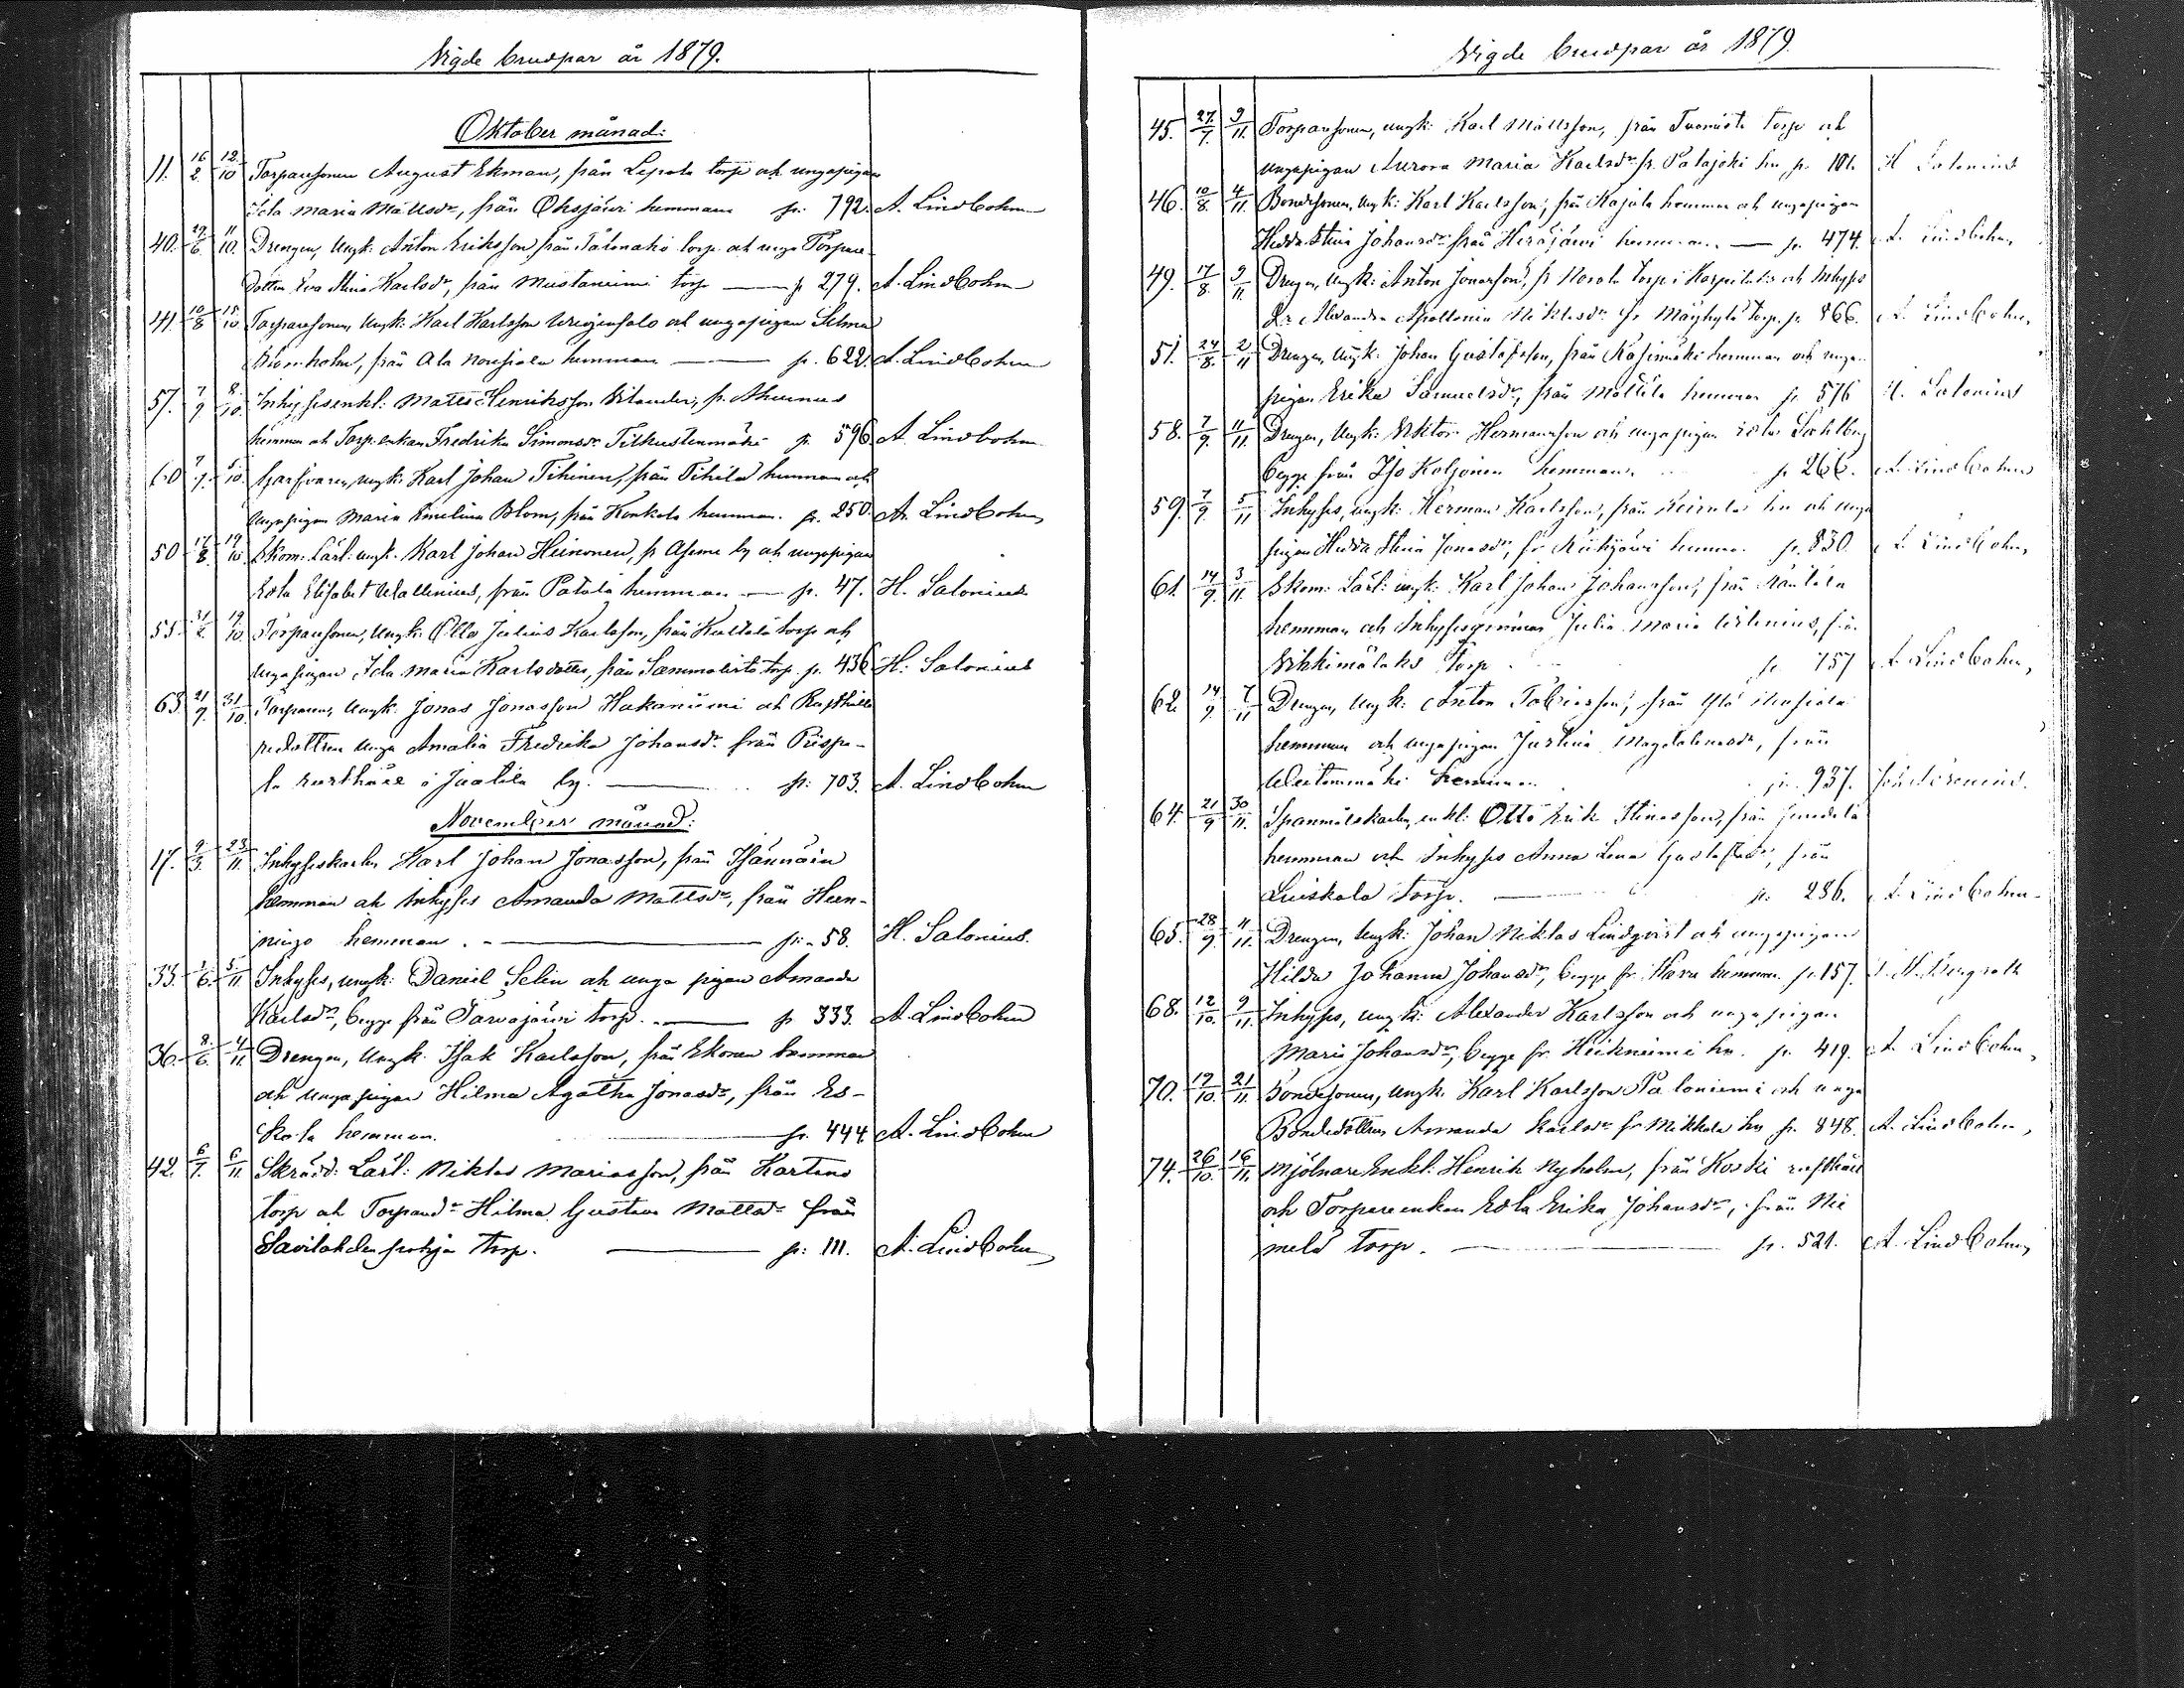 Vigde brudpar år 1879.
Oktober månad:
11. 16/2. 12/10 Torparesonen August Ekman, från Lepola torp och ungapigan
Ida Maria Mattsdr, från Oksjärvi hemman p: 792. A. Lindbohm
40. 29/6. 11/10. Drengen, Ungk: Anton Eriksson från torp och unga Torpare
dottern Eva Stina Karlsdr, från Mustaniemi torp p 279. A. Lindbohm
41. 10/8 15/10 Torparesonen, Ungk: Karl Karlsson och ungapigan Silma
från Ala hemman p. 622. A. Lindbohm
57. 7/9 8/10. Inhysesenkl: Matts Henriksson fr.
hemman och Torp.enkan Fredrika Simonsdr p. 596 A. Lindbohm
60 7/9. 5/10. Garfvaren, ungk: Karl Johan Tihinen, från Tihilä hemman och
Ungapigan Maria Emelina Blom, från Konkola hemman. p. 250. A. Lindbohm
50 17/8 19/10 Skom: Lärl: ungk. Karl Johan Heinonen, fr by och ungapigan
Eda Elisabet Wallenius, från hemman p. 47. H. Salonius
55. 31/8. 19/10 Torparesonen, Ungk: Otto Julius Karlsson, från torp och
Ungapigan Ida Maria Karlsdotter, från torp. p. 436 H. Salonius
63. 21/9. 31/10. Torparen, Ungk: Jonas Jonasson Hakaniemi och
redottren Unga Amalia Fredrika Johansdr från Prispa-
la rusthåll i Jaatila by. p: 703. A. Lindbohm
November månad:
17. 9/3. 23/11 Inhyseskarlen Karl Johan Jonasson, från
hemman och Inhyses Amanda Mattsdr, från Heen-
hemman. p: 58. H. Salonius.
33. 1/6. 5/11 Inhyses, ungk: Daniel Selin och unga pigan Amanda
Karlsdr, begge från Tarvajärvi torp. p 333. A. Lindbohm
36. 8/6. 4/11. Drengen, Ungk: Isak Karlsson, från Ekonen hemman
och Unga pigan Hilma Agatha Jonasdr, från Es-
kola hemman. p. 444 A. Lindbohm
42. 6/7. 6/11 Skrädd: Lärl: Niklas Mariasson, från
torp och Torparedr Hilma Gustava Mattsdr från
Savilahdenpohja torp. p: 111. A. Lindbohm
Vigde brudpar år 1879
45. 27/7. 9/11. Torparesonen, ungk: Karl Mattsson, från torp och
ungapigan Aurora Maria Karlsdr fr. Palajoki hn p. 101. H Salonius
46. 10/8. 4/11. Bondesonen, Ungk: Karl Karlsson, från hemman och ungapigan
Hedda Stina Johansdr från hemman p. 474. A. Lindbohm
49. 17/8. 9/11. Drengen, Ungk: Anton Jonasson, fr torp i och Inhyses
Alexandra Apollonia Niklasdr fr Mäyhylä torp. p. 866. A. Lindbohm,
51. 24/8. 2/11 Drengen, Ungk: Johan Gustafsson, från hemman och unga
pigan Erika Samuelsdr, från Mattila hemman p 576 H. Salonius
58. 7/9. 11/11 Drengen, Ungk: Viktor Hermansson och ungapigan Sahlberg
begge från Iso Koljonen hemman. p. 266. A. Lindbohm
59. 7/9. 5/11 Inhyses, ungk: Herman Karlsson, från hn och unga
pigan Hedda Stina Jonasdr, fr Riihijärvi hemman p. 830. A. Lindbohm,
61. 14/9. 3/11. Skom: Lärl: ungk: Karl Johan Johansson, från Räntilä
hemman och Inhysesqvinnan Julia Maria från
torp p 757 A Lindbohm,
62. 14/9. 7/11 Drengen, Ungk: Anton Tobiasson, från Ylä
hemman och ungapigan Justina Magdalenasdr, från
hemman. p. 937.
64. 21/9 30/11. Spannmålskarlen, enkl: Otto Erik Stinasson, från
hemman och Inhyses Anna Lena Gustafsdr, från
Luiskala torp. p: 286. A. Lindbohm
65. 28/9. 11/11. Drengen, Ungk: Johan Niklas Lindqvist och ungapigan
Hilda Johanna Johansdr, begge fr. hemman p. 157. Bergroth
68. 12/10. 9/11. Inhyses, ungk: Alexander Karlsson och ungapigan
Maria Johansdr, begge fr. Heikniemi hn. p. 419. A. Lindbohm,
70. 19/10. 21/11. Bondesonen, Ungk: Karl Karlsson Paloniemi och unga
Bondedottren Amanda Karlsdr fr Mikkola hn p. 848. A. Lindbohm,
74. 26/10. 16/11. Mjölnare Enkl: Henrik Nyholm, från Koski rusthåll
och Torpareenkan Eda Erika Johansdr, från Nie
melä torp. p. 521. A. Lindbohm,